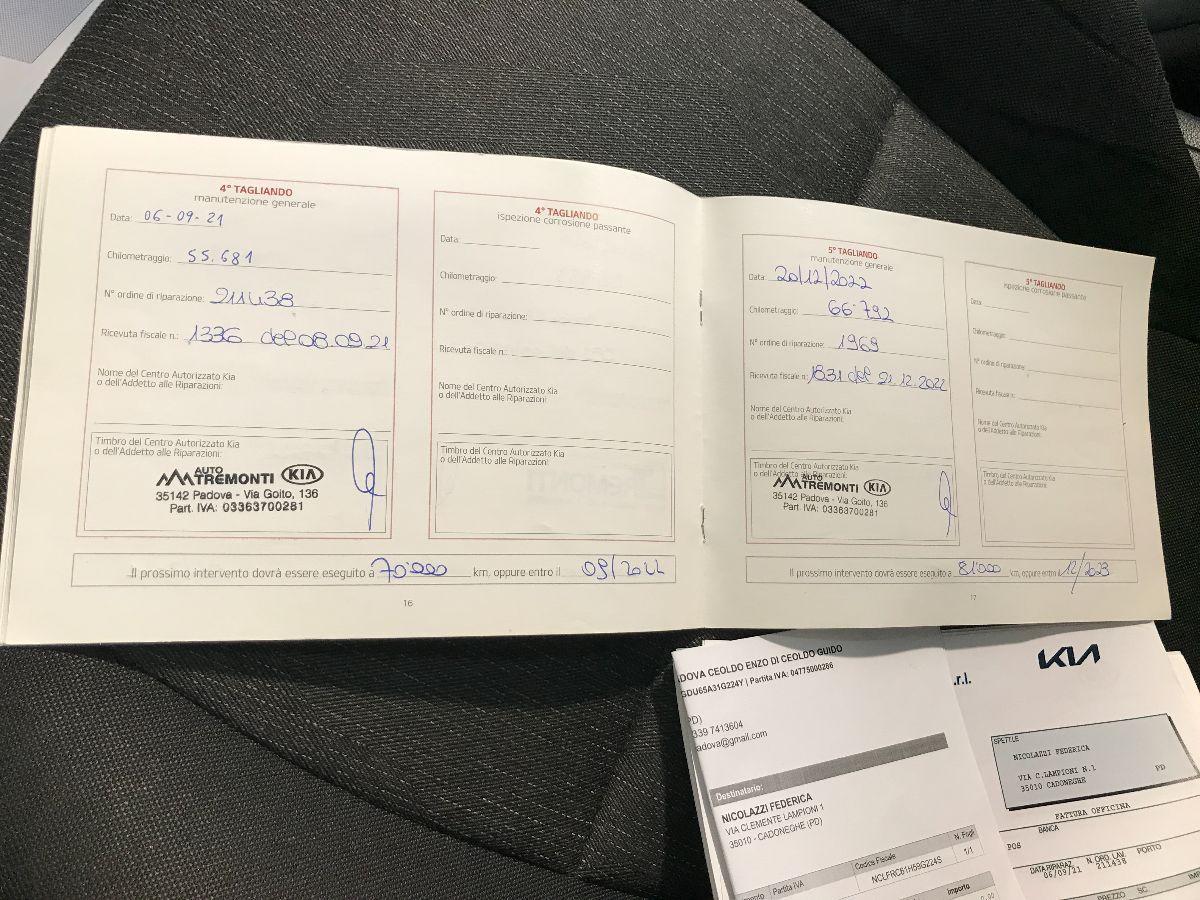 4° TAGLIANDO
manutenzione generale
Data: 06-09-21
Chilometraggio: 55.681
N° ordine di riparazione: 211438
Ricevuta fiscale n.: 1336 del 08.09.21
Nome del Centro Autorizzato Kia
o dell'Addetto alle Riparazioni:
Timbro del Centro Autorizzato Kia
o dell'Addetto alle Riparazioni:
AUTO
TREMONTI KIA
35142 Padova - Via Goito, 136
Part. IVA: 03363700281
4° TAGLIANDO
ispezione corrosione passante
Data:
Chilometraggio:
N° ordine di riparazione:
Ricevuta fiscale n.:
Nome del Centro Autorizzato Kia
o dell'Addetto alle Riparazioni:
Timbro del Centro Autorizzato Kia
o dell'Addetto alle Riparazioni:
Il prossimo intervento dovrà essere eseguito a 70'000 km, oppure entro il 09/2022
16
5° TAGLIANDO
manutenzione generale
Data: 20/12/2022
Chilometraggio: 66'792
N° ordine di riparazione: 1969
Ricevuta fiscale n.: 1831 del 21.12.2022
Nome del Centro Autorizzato Kia
o dell'Addetto alle Riparazioni:
Timbro del Centro Autorizzato Kia
o dell'Addetto alle Riparazioni:
AUTO
TREMONTI KIA
35142 Padova - Via Goito, 136
Part. IVA: 03363700281
5° TAGLIANDO
ispezione corrosione passante
Data:
Chilometraggio:
N° ordine di riparazione:
Ricevuta fiscale n.:
Nome del Centro Autorizzato Kia
o dell'Addetto alle Riparazioni:
Timbro del Centro Autorizzato Kia
o dell'Addetto alle Riparazioni:
Il prossimo intervento dovrà essere eseguito a 81'000 km, oppure entro il 12/2023
17
DOVA CEOLDO ENZO DI CEOLDO GUIDO
GDU65A31G224Y | Partita IVA: 04775000286
PD)
339 7413604
adova@gmail.com
Destinatario:
NICOLAZZI FEDERICA
VIA CLEMENTE LAMPIONI 1
35010 - CADONEGHE (PD)
Partita IVA
Codice Fiscale
N. Fogli
NCLFRC61H59G224S
1/1
Importo
KIA
.r.l.
SPETT.LE
NICOLAZZI FEDERICA
VIA C.LAMPIONI N.1
35010 CADONEGHE PD
FATTURA OFFICINA
BANCA
POS
DATA RIPARAZ. N. ORD. LAV. PORTO
06/09/21 211438
PREZZO SC.